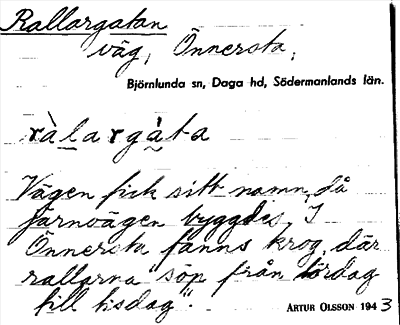 Rallargatan
väg, Önnersta,
Björnlunda sn, Daga hd, Södermanlands län.
ràlargàta
Vägen fick sitt namn, då
järnvägen byggdes. I
Önnersta fanns krog, där
rallarna "söp från lördag
till tisdag".
ARTUR OLSSON 1943